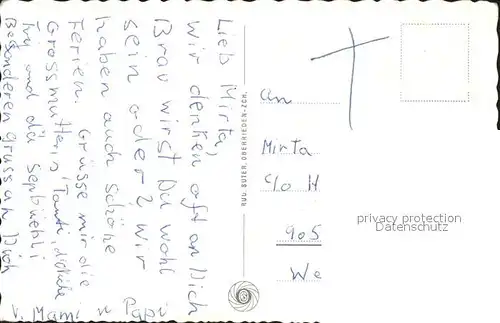 Lieb Mirta,
Wir denken oft an Dich
Brav wirst Du wohl
sein oder? Wir
haben auch schöne
Ferien. Grüsse mir die
Grossmutter, Tante,
Ihr und die
Besonderen Gruss an Dich
v. Mami u Papi
RUD. SUTER, OBERRIEDEN-ZCH.
An
Mirta
c/o H
905
We
privacy protection
Datenschutz